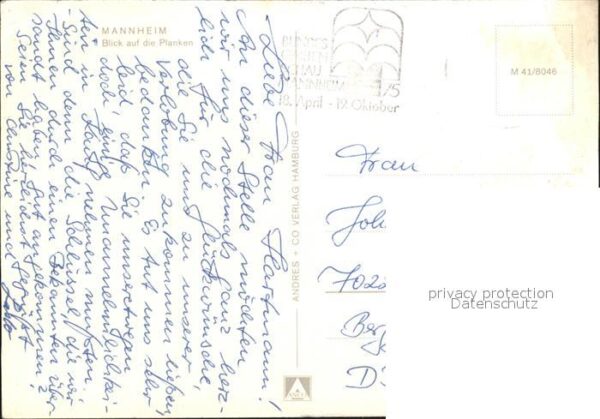 MANNHEIM
Blick auf die Planken
BUNDES
GARTEN
SCHAU
MANNHEIM 75
18. April - 19. Oktober
M 41/8046
Liebe Frau Hartmann!
An dieser Stelle möchten
wir uns nochmals ganz herz-
lich für die Glückwünsche,
die Sie uns zu unserer
Verlobung zukommen ließen,
bedanken. Es tut uns sehr
leid, daß Sie unseretwegen
doch einige Unannehmlichkei-
ten in Kauf nehmen mußten.
Sind denn die Schlüssel, die wir
Ihnen durch einen Bekannten über-
sandt haben, gut angekommen?
Seien Sie herzlichst gegrüßt
von Christine und
ANDRES + CO VERLAG HAMBURG
Frau
Joh
702
Berg
D
privacy protection
Datenschutz